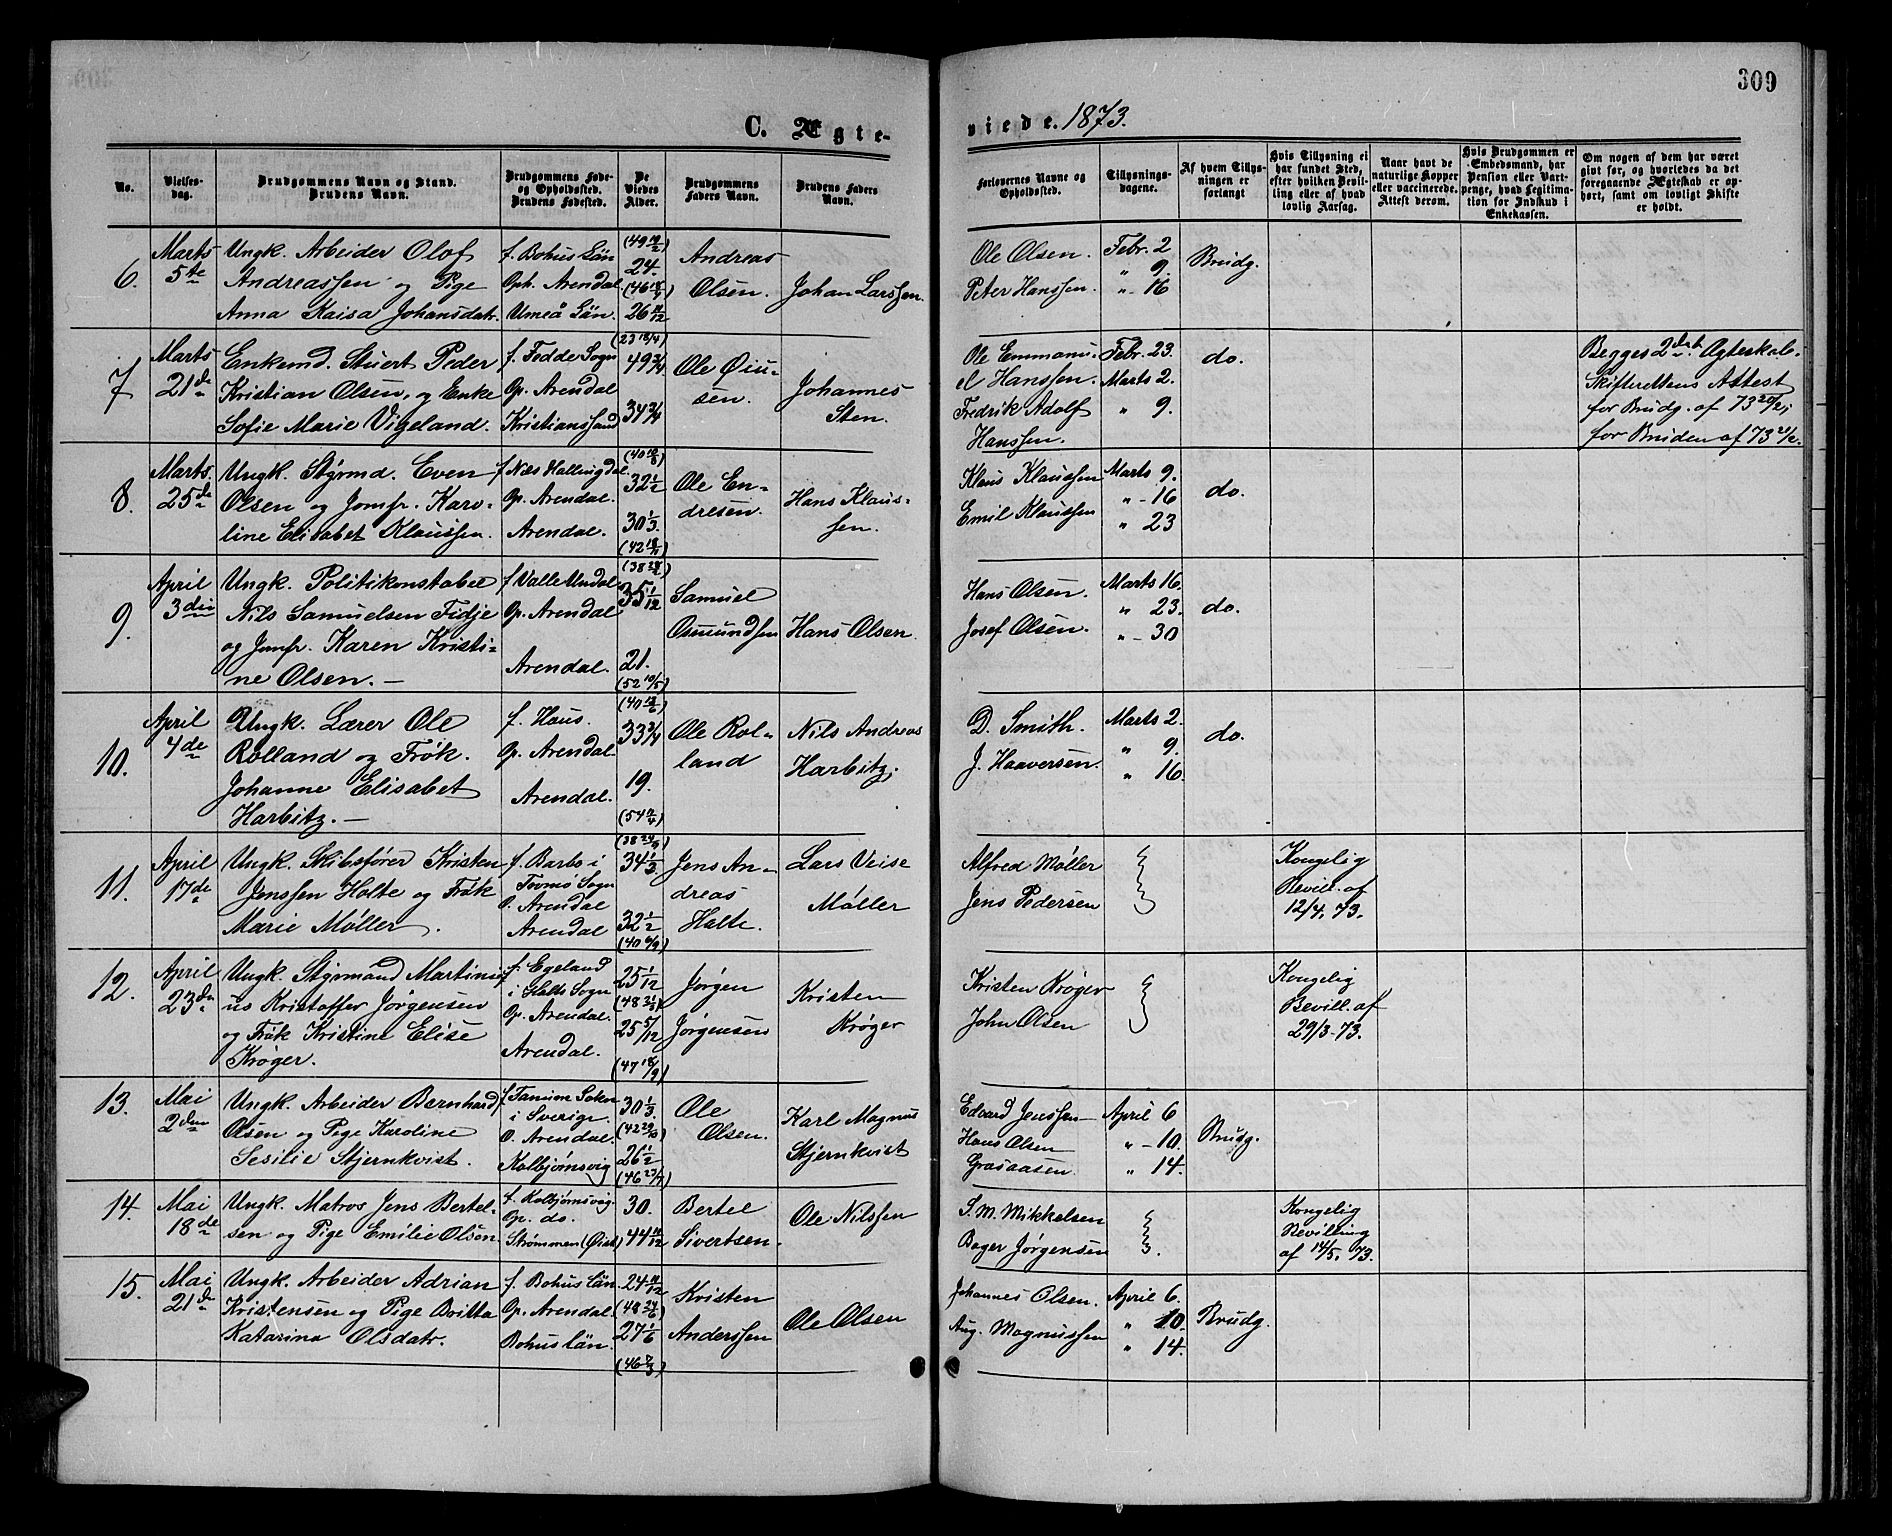 309
C. Ægte-
viede. 1873.
No.
Vielses-
dag.
Brudgommens Navn og Stand.
Brudens Navn.
Brudgommens Føde-
og Opholdssted.
Brudens Fødested.
De
Viedes
Alder.
Brudgommens
Faders Navn.
Brudens Faders
Navn.
Forlovernes Navne og
Opholdssted.
Tillysnings-
dagene.
Af hvem Tillys-
ningen er
forlangt
Hvis Tillysning ei
har fundet Sted,
efter hvilken Bevil-
ling eller af hvad
lovlig Aarsag.
Naar havt de
naturlige Kopper
eller vaccinerede.
Attest derom.
Hvis Brudgommen er
Embedsmand, har
Pension eller Vart-
penge, hvad Legitima-
tion for Indskud i
Enkekassen.
Om nogen af dem har været
givt før, og hvorledes da det
foregaaende Ægteskab er op-
hørt, samt om lovligt Skifte
er holdt.
6.
Marts
5te
Ungk. Arbeider Olof
Andreassen og Pige
Anna Kaisa Johansdatr.
f. Bohus Län
Oph. Arendal
Umeå Län.
24.
26 11/12
Andreas
Olsen.
Johan Larssen.
Ole Olsen.
Peter Hanssen.
Febr. 2
" 9.
"- 16
Brudg.
7
Marts
21de
Enkemd. Stuert Peder
Kristian Olsen, og Enke
Sofie Marie Vigeland.
f. Fedde Sogn
Op. Arendal
Kristianssand
(23 18/4)
49 3/4
34 3/4
Ole Øiu-
sen.
Johannes
Sten.
Ole Emmanu-
el Hanssen.
Fredrik Adolf
Hanssen.
Febr. 23.
Marts 2.
" 9.
do.
Begges 2det Ægteskab.
Skifterettens Attest
for Brudg. af 73 20/2;
for Bruden af 73 21/2.
8.
Marts
25de
Ungk. Styrmd. Even
Olsen og Jomfr. Karo-
line Elisabet Klaussen.
f. Næs Hallingdal.
Op. Arendal.
Arendal.
32 1/2
30 1/3.
Ole En-
dresen.
Hans Klaus-
sen.
Klaus Klaussen
Emil Klaussen
Marts 9.
"- 16
" 23
do.
9.
April
3die
Ungk. Politikonstabel
Nils Samuelsen Fidje
og Jomfr. Karen Kristi-
ne Olsen. —
f Valle Undal
Op. Arendal
Arendal.
35 1/12
21.
(52 10/5)
Samuel
Osmundsen
Hans Olsen.
Hans Olsen.
Josef Olsen.
Marts 16.
" 23.
"- 30
do.
10.
April
4de
Ungk. Lærer Ole
Rolland og Frøk.
Johanne Elisabet
Harbitz. —
f. Haus.
Op. Arendal.
Arendal.
33 3/4
19.
Ole Rol-
land
Nils Andreas
Harbitz.
D. Smith.
J. Haaversen.
Marts 2.
" 9.
" 16.
do.
11.
April
17de
Ungk. Skibsfører Kristen
Jenssen Holte og Frøk
Marie Møller.
f. Barbo i
Tromø Sogn
O. Arendal
Arendal
(38 24/9)
34 1/3
32 1/2
Jens An-
dreas
Holte.
Lars Veise
Møller
Alfred Møller
Jens Pedersen
Kongelig
Bevill. af
12/4. 73.
12.
April
23de
Ungk. Styrmand Martini-
us Kristoffer Jørgensen
og Frøk Kristine Elise
Krøger.
f. Egeland
i Holts Sogn
Op. Arendal.
Arendal.
25 1/12
25 5/12
(47 18/9)
Jørgen
Jørgensen
Kristen
Krøger
Kristen Krøger
John Olsen
Kongelig
Bevill. af
29/3-73.
13.
Mai
2den
Ungk. Arbeider Bernhard
Olsen og Pige Karoline
Sesilie Stjernkvist.
f Tanum Soken
i Sverige.
O. Arendal.
Kolbjørnsvig
30 1/3.
(42 29/10)
26 1/2
(46 23/7)
Ole
Olsen.
Karl Magnus
Stjernkvist
Edvard Jenssen
Hans Olsen
Graaaasen.
April 6
"- 10.
" 14.
Brudg.
14.
Mai
18de
Ungk. Matros Jens Bertel-
sen og Pige Emilie Olsen
f. Kolbjørnsvig
Op. do.
Strømmen (Øist)
30.
44 11/12
Bertel
Sivertsen.
Ole Nilssen
S. M. Mikkelsen
Boger Jørgensen
Kongelig
Bevilling
af 14/5. 73.
15.
Mai
21de
Ungk. Arbeider Adrian
Kristensen og Pige Britta
Katarina Olsdatr.
f. Bohus Län
Op. Arendal
Bohuslän.
24 11/12
(48 24/6)
27 1/6
(46 7/3)
Kristen
Anderssen
Ole Olsen
Johannes Olsen.
Aug. Magnussen
April 6.
" 10.
" 14.
Brudg.